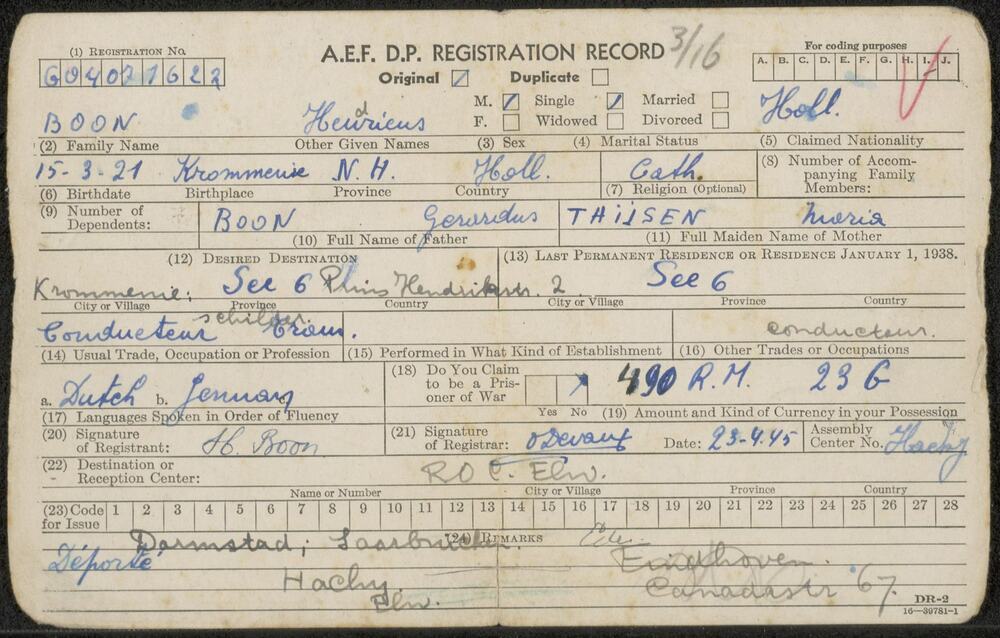 (1) REGISTRATION NO.
G04071622
A.E.F. D.P. REGISTRATION RECORD 3/16
Original Duplicate
For coding purposes
A. B. C. D. E. F. G. H. I. J.
BOON Hendricus M. Single Married Holl.
F. Widowed Divorced
(2) Family Name Other Given Names (3) Sex (4) Marital Status (5) Claimed Nationality
15-3-21 Krommenie N.H. Holl. Cath. (8) Number of Accom-
panying Family
Members:
(6) Birthdate Birthplace Province Country (7) Religion (Optional)
(9) Number of
Dependents: BOON Gerardus THIJSEN Maria
(10) Full Name of Father (11) Full Maiden Name of Mother
(12) DESIRED DESTINATION (13) LAST PERMANENT RESIDENCE OR RESIDENCE JANUARY 1, 1938.
Krommenie: See 6 Prins Hendrikstr. 2 See 6
City or Village Province Country City or Village Province Country
schilder.
Conducteur Tram. conducteur.
(14) Usual Trade, Occupation or Profession (15) Performed in What Kind of Establishment (16) Other Trades or Occupations
a. Dutch b. Germany c. (18) Do You Claim
to be a Pris-
oner of War Yes No 490 R.M. 23 G
(17) Languages Spoken in Order of Fluency (19) Amount and Kind of Currency in your Possession
(20) Signature
of Registrant: H. Boon (21) Signature
of Registrar: Date: 23-4.45 Assembly
Center No. Hachy
(22) Destination or
- Reception Center: ROC. Elw.
Name or Number City or Village Province Country
(23) Code
for Issue 1 2 3 4 5 6 7 8 9 10 11 12 13 14 15 16 17 18 19 20 21 22 23 24 25 26 27 28
(24) REMARKS
Darmstad; Saarbrucken.
Déporté Eindhoven.
Hachy Canadastr 67.
Elw.
DR-2
16—39781-1